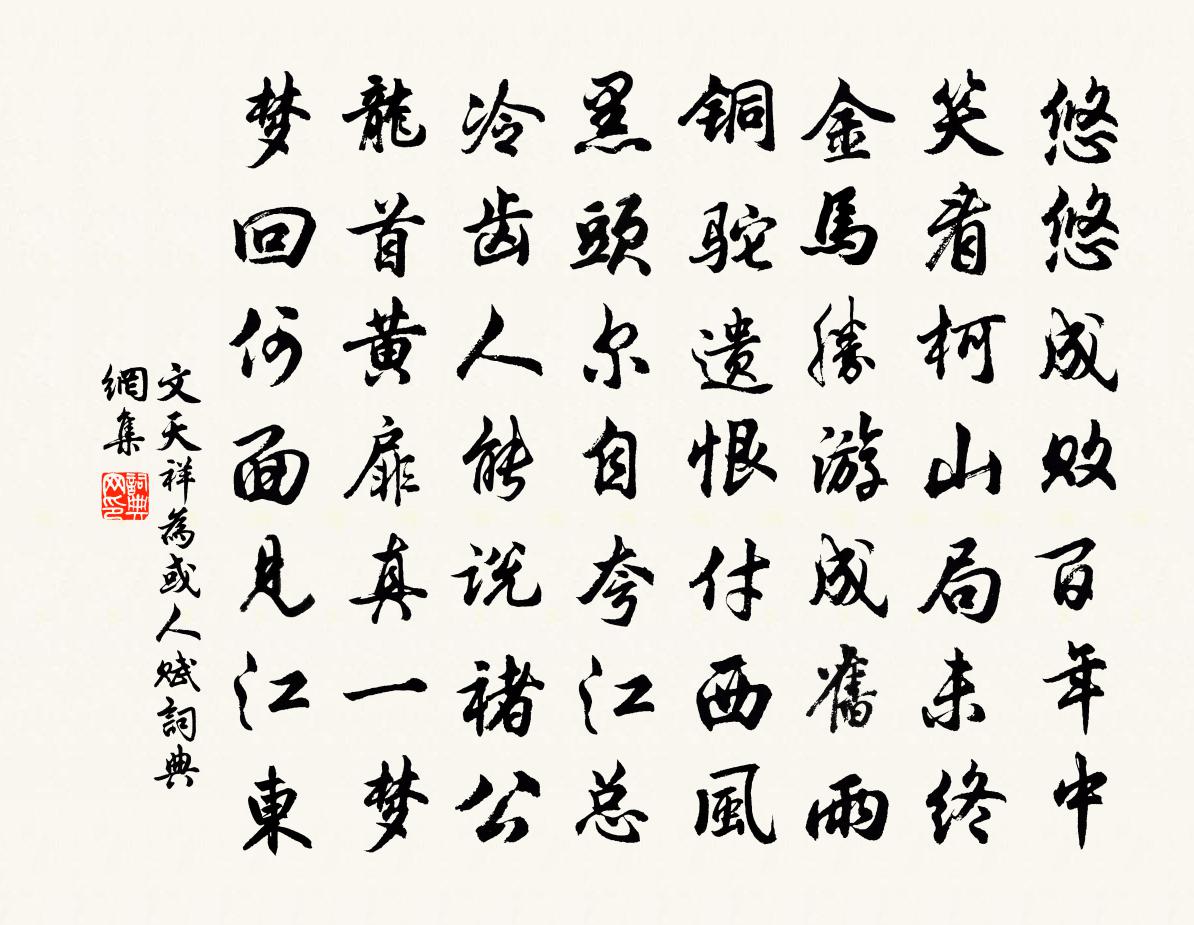 悠悠成败百年中
笑看柯山局未终
金馬勝游成舊雨
铜驼遗恨付西風
黑頭尔自夸江总
冷齿人能说褚公
龍首黄扉真一梦
梦回何面見江東
文天祥為或人赋詞典
網集
詞典
网印